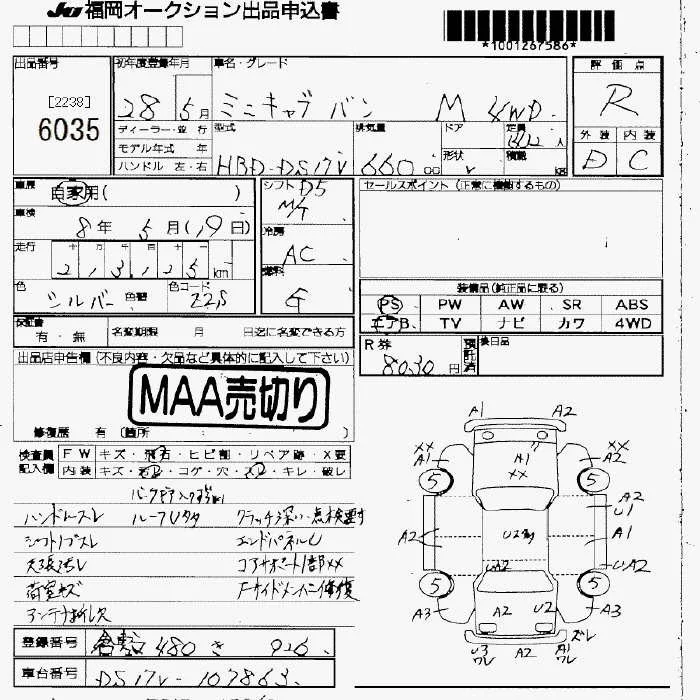 JU 福岡オークション出品申込書
*1001267586*
出品番号
[2238]
6035
初年度登録年月
28 5月
車名・グレード
ミニキャブ バン M 4WD
評価点
R
ディーラー・並行
モデル年式 年
ハンドル 左・右
型式
HBD-DS17V
排気量
660 cc
ドア
形状
V
定員
人
積載
外装 内装
D C
車歴
自家用( )
車検
8年 5月(19日)
走行
213,125 km
色
シルバー 色替
色コード
22S
シフト D5
M/T
冷房
AC
燃料
G
セールスポイント (正常に機能するもの)
装備品(純正品に限る)
PS PW AW SR ABS
エアB. TV ナビ カワ 4WD
保証書
有・無
名変期限 月 日迄に名変できる方
R券
8030 円
預託済
後日品
出品店申告欄 (不良内容・欠品など具体的に記入して下さい)
MAA売切り
修復歴 有 (箇所 )
検査員記入欄
FW キズ・飛石・ヒビ割・リペア跡・X要
内装 キズ・汚レ・コゲ・穴・スレ・キレ・破レ
ハンドルスレ ルーフUタタ クラッチ深い・点検要す
シフトノブスレ エンドパネルU
天張汚レ コアサポート部XX
荷室キズ
アンテナ折レ欠
A1 A2
XX A1 A1 XX XX A2
5 5
A2 A2 U1
A2 A1
UA2 UA2
5 5
A3 A2 U2 A3
ズレ
U3 ワレ A2 A1 ワレ
登録番号 倉敷 480 き 926
車台番号 DS17V-107863